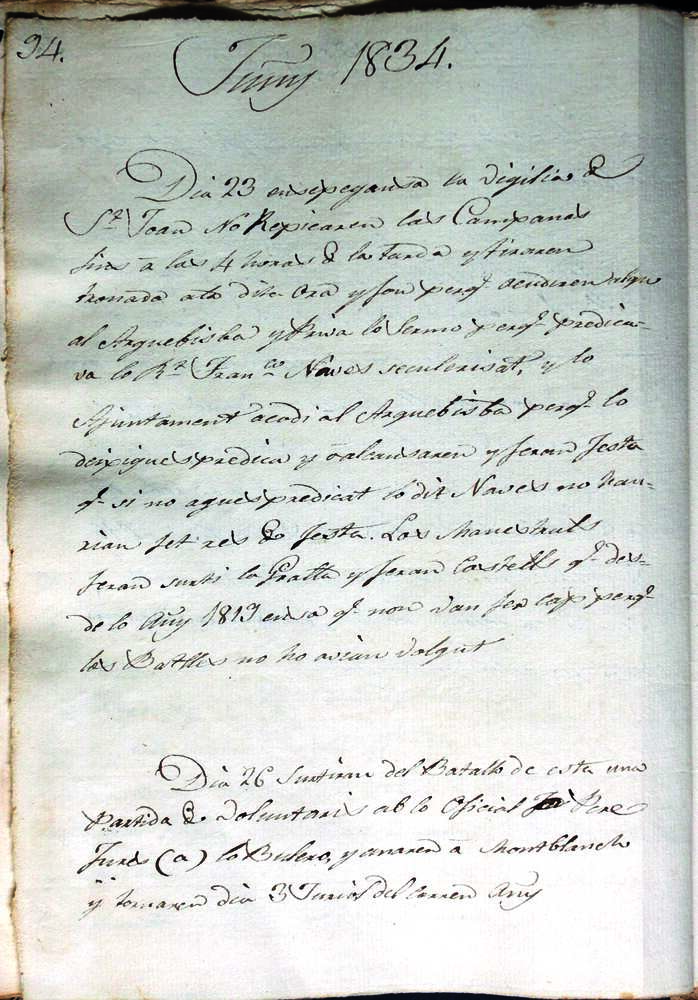 94.
Juny 1834.
Dia 23 ensepegansa la Vigilia de
St. Joan No Repicaren las Campanas
fins a las 4 horas de la tarda y tiraren
tronada a la dita ora y fou perq.
al Arquebisba y Priva lo Sermo perq. predica-
va lo Rt. Franco. Naves secularisat, y lo
Ajuntament acodi al Arquebisba perq. lo
deixiques predica y o alcansaren y feran festa
q. si no agues predicat lo dit Naves no hau-
rian fet res de festa. Los Manestrals
feran surti la Gralla y feran Castells q. des-
de lo Añy 1813 ensa q. non van fer cap perq.
los Batlles no ho avian volgut
Dia 26 Surtiran del Batallo de esta una
Partida de Voluntaris ab lo Oficial Pere
(a) lo Bulero, y anaren a Montblanch
y tornaren dia 3 del corren Añy